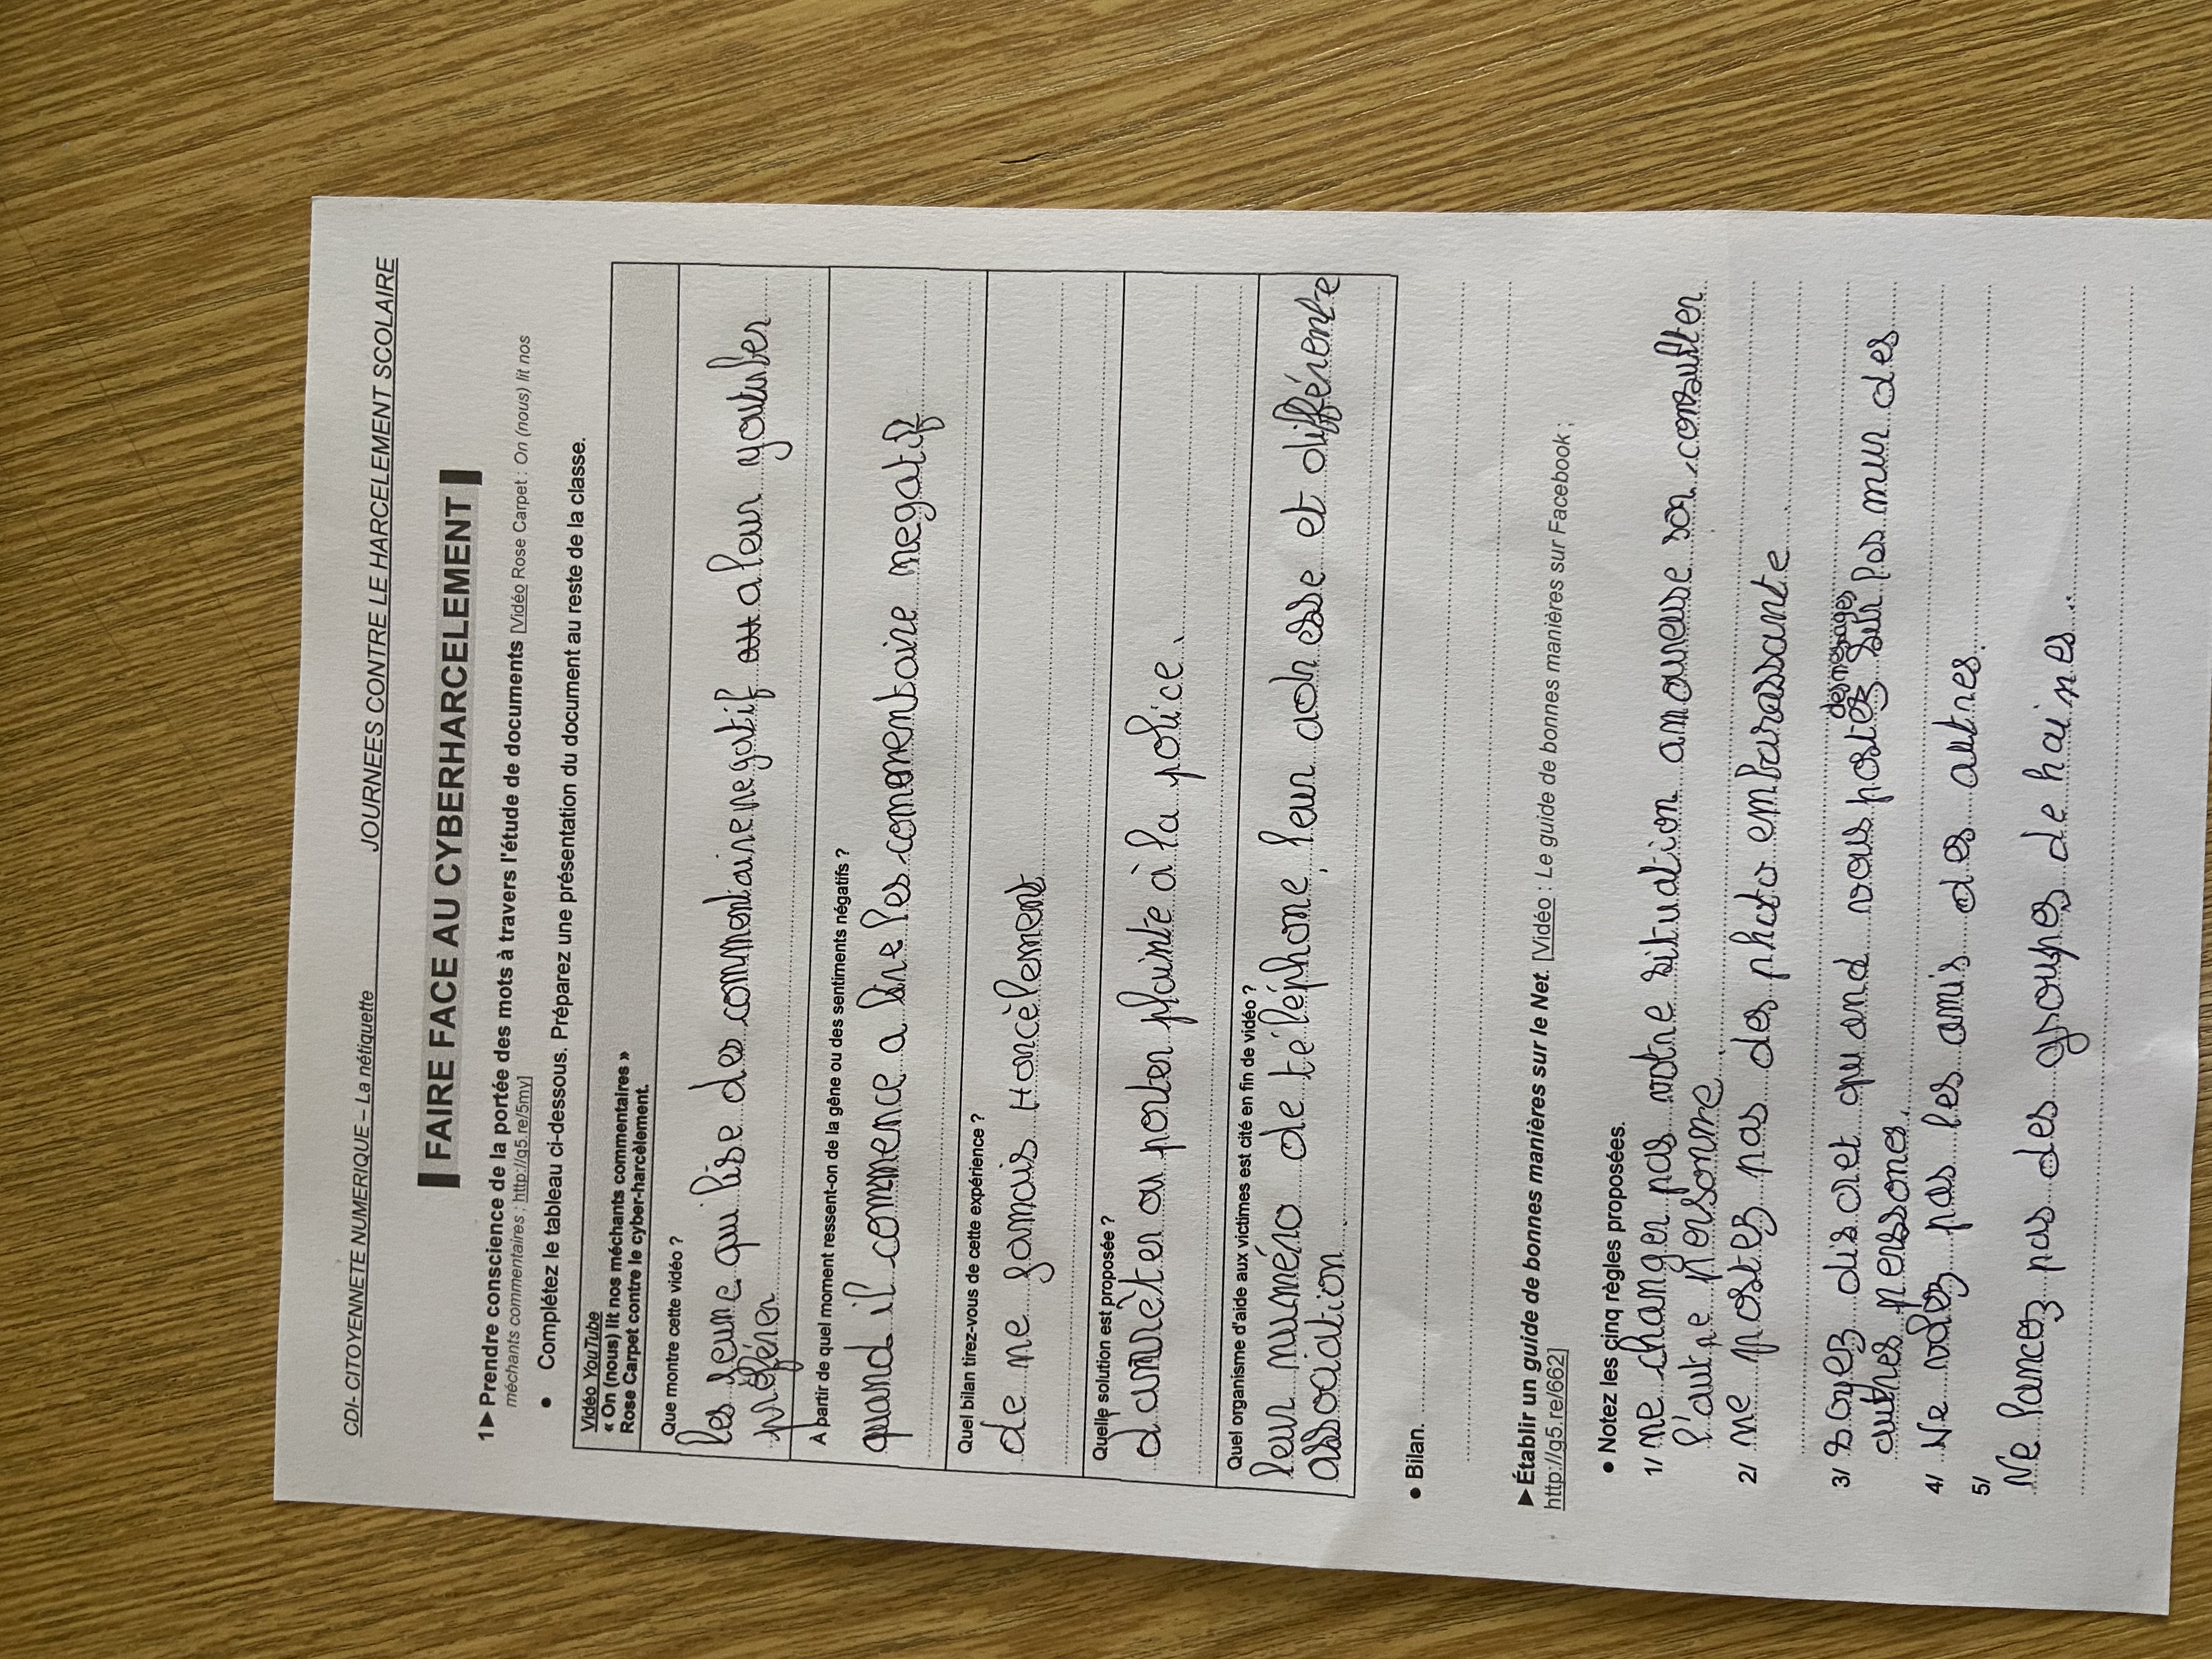 CDI- CITOYENNETE NUMERIQUE – La nétiquette JOURNEES CONTRE LE HARCELEMENT SCOLAIRE
FAIRE FACE AU CYBERHARCELEMENT
1► Prendre conscience de la portée des mots à travers l'étude de documents [Vidéo Rose Carpet : On (nous) lit nos
méchants commentaires ; http://q5.re/5my]
● Complétez le tableau ci-dessous. Préparez une présentation du document au reste de la classe.
Vidéo YouTube
« On (nous) lit nos méchants commentaires »
Rose Carpet contre le cyber-harcèlement.
Que montre cette vidéo ?
les jeune qui lise des commentaire negatif a leur youtuber
préférer
À partir de quel moment ressent-on de la gêne ou des sentiments négatifs ?
quand il commence a lire les commentaire negatif
Quel bilan tirez-vous de cette expérience ?
de ne jamais Harcèlement
Quelle solution est proposée ?
d'arrèter ou porter plainte à la police.
Quel organisme d'aide aux victimes est cité en fin de vidéo ?
leur numéro de téléphone, leur adresse et différente
association
● Bilan.
► Établir un guide de bonnes manières sur le Net. [Vidéo : Le guide de bonnes manières sur Facebook ;
http://q5.re/662]
● Notez les cinq règles proposées.
1/ ne changer pas votre situation amoureuse son consulter
l'autre personne
2/ ne postez pas des photo embarassante
des messages
3/ soyez discret quand vous postez sur los mur des
authes personnes.
4/ Ne volez pas les amis des autres.
5/
Ne lancez pas des groupes de haines.